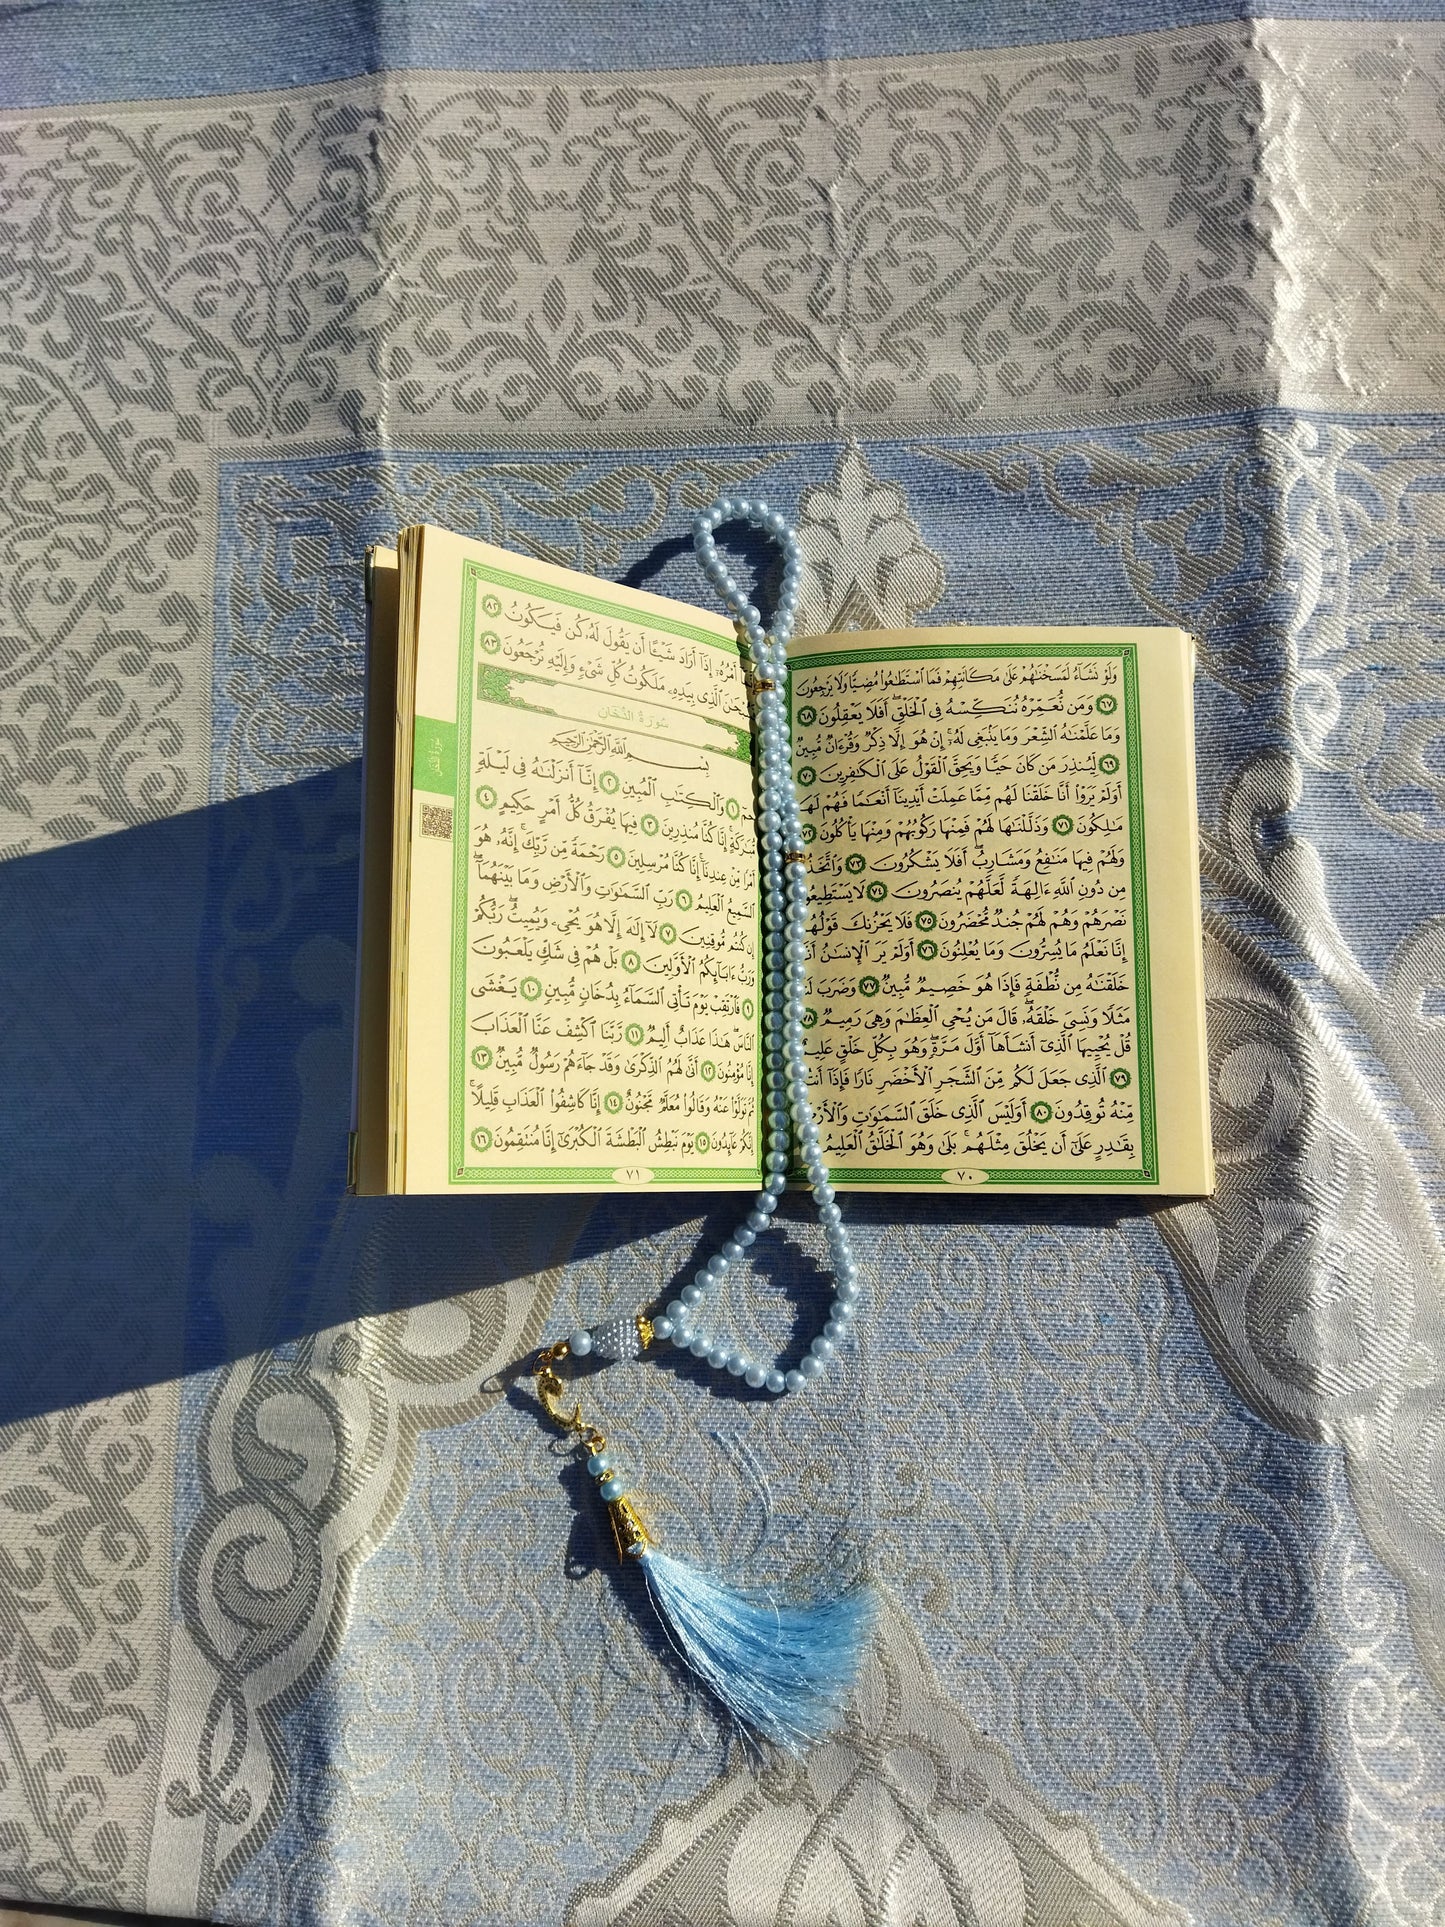 وَلَوْ نَشَآءُ لَمَسَخْنَٰهُمْ عَلَىٰ مَكَانَتِهِمْ فَمَا ٱسْتَطَٰعُوا۟ مُضِيًّا وَلَا يَرْجِعُونَ
٦٧ وَمَن نُّعَمِّرْهُ نُنَكِّسْهُ فِى ٱلْخَلْقِ ۖ أَفَلَا يَعْقِلُونَ ٦٨
وَمَا عَلَّمْنَٰهُ ٱلشِّعْرَ وَمَا يَنۢبَغِى لَهُۥٓ ۚ إِنْ هُوَ إِلَّا ذِكْرٌ وَقُرْءَانٌ مُّبِينٌ
٦٩ لِّيُنذِرَ مَن كَانَ حَيًّا وَيَحِقَّ ٱلْقَوْلُ عَلَى ٱلْكَٰفِرِينَ ٧٠
أَوَلَمْ يَرَوْا۟ أَنَّا خَلَقْنَا لَهُم مِّمَّا عَمِلَتْ أَيْدِينَآ أَنْعَٰمًا فَهُمْ لَهَا
مَٰلِكُونَ ٧١ وَذَلَّلْنَٰهَا لَهُمْ فَمِنْهَا رَكُوبُهُمْ وَمِنْهَا يَأْكُلُونَ ٧٢
وَلَهُمْ فِيهَا مَنَٰفِعُ وَمَشَارِبُ ۖ أَفَلَا يَشْكُرُونَ ٧٣ وَٱتَّخَذُ
مِن دُونِ ٱللَّهِ ءَالِهَةً لَّعَلَّهُمْ يُنصَرُونَ ٧٤ لَا يَسْتَطِيعُو
نَصْرَهُمْ وَهُمْ لَهُمْ جُندٌ مُّحْضَرُونَ ٧٥ فَلَا يَحْزُنكَ قَوْلُهُمْ
إِنَّا نَعْلَمُ مَا يُسِرُّونَ وَمَا يُعْلِنُونَ ٧٦ أَوَلَمْ يَرَ ٱلْإِنسَٰنُ أَنَّا
خَلَقْنَٰهُ مِن نُّطْفَةٍ فَإِذَا هُوَ خَصِيمٌ مُّبِينٌ ٧٧ وَضَرَبَ لَنَا
مَثَلًا وَنَسِىَ خَلْقَهُۥ ۖ قَالَ مَن يُحْىِ ٱلْعِظَٰمَ وَهِىَ رَمِيمٌ ٧٨
قُلْ يُحْيِيهَا ٱلَّذِىٓ أَنشَأَهَآ أَوَّلَ مَرَّةٍ ۖ وَهُوَ بِكُلِّ خَلْقٍ عَلِيمٌ
٧٩ ٱلَّذِى جَعَلَ لَكُم مِّنَ ٱلشَّجَرِ ٱلْأَخْضَرِ نَارًا فَإِذَآ أَنتُم
مِّنْهُ تُوقِدُونَ ٨٠ أَوَلَيْسَ ٱلَّذِى خَلَقَ ٱلسَّمَٰوَٰتِ وَٱلْأَرْضَ
بِقَٰدِرٍ عَلَىٰٓ أَن يَخْلُقَ مِثْلَهُم ۚ بَلَىٰ وَهُوَ ٱلْخَلَّٰقُ ٱلْعَلِيمُ
٧٠
إِنَّمَآ أَمْرُهُۥٓ إِذَآ أَرَادَ شَيْـًٔا أَن يَقُولَ لَهُۥ كُن فَيَكُونُ ٨٢
فَسُبْحَٰنَ ٱلَّذِى بِيَدِهِۦ مَلَكُوتُ كُلِّ شَىْءٍ وَإِلَيْهِ تُرْجَعُونَ ٨٣
سُورَةُ الدُّخَانِ
بِسْمِ ٱللَّهِ ٱلرَّحْمَٰنِ ٱلرَّحِيمِ
حمٓ ١ وَٱلْكِتَٰبِ ٱلْمُبِينِ ٢ إِنَّآ أَنزَلْنَٰهُ فِى لَيْلَةٍ
مُّبَٰرَكَةٍ ۚ إِنَّا كُنَّا مُنذِرِينَ ٣ فِيهَا يُفْرَقُ كُلُّ أَمْرٍ حَكِيمٍ ٤
أَمْرًا مِّنْ عِندِنَآ ۚ إِنَّا كُنَّا مُرْسِلِينَ ٥ رَحْمَةً مِّن رَّبِّكَ ۚ إِنَّهُۥ هُوَ
ٱلسَّمِيعُ ٱلْعَلِيمُ ٦ رَبِّ ٱلسَّمَٰوَٰتِ وَٱلْأَرْضِ وَمَا بَيْنَهُمَآ ۖ
إِن كُنتُم مُّوقِنِينَ ٧ لَآ إِلَٰهَ إِلَّا هُوَ يُحْىِۦ وَيُمِيتُ ۖ رَبُّكُمْ
وَرَبُّ ءَابَآئِكُمُ ٱلْأَوَّلِينَ ٨ بَلْ هُمْ فِى شَكٍّ يَلْعَبُونَ
٩ فَٱرْتَقِبْ يَوْمَ تَأْتِى ٱلسَّمَآءُ بِدُخَانٍ مُّبِينٍ ١٠ يَغْشَى
ٱلنَّاسَ ۖ هَٰذَا عَذَابٌ أَلِيمٌ ١١ رَّبَّنَا ٱكْشِفْ عَنَّا ٱلْعَذَابَ
إِنَّا مُؤْمِنُونَ ١٢ أَنَّىٰ لَهُمُ ٱلذِّكْرَىٰ وَقَدْ جَآءَهُمْ رَسُولٌ مُّبِينٌ ١٣
ثُمَّ تَوَلَّوْا۟ عَنْهُ وَقَالُوا۟ مُعَلَّمٌ مَّجْنُونٌ ١٤ إِنَّا كَاشِفُوا۟ ٱلْعَذَابِ قَلِيلًا ۚ
إِنَّكُمْ عَآئِدُونَ ١٥ يَوْمَ نَبْطِشُ ٱلْبَطْشَةَ ٱلْكُبْرَىٰٓ إِنَّا مُنتَقِمُونَ ١٦
٧١